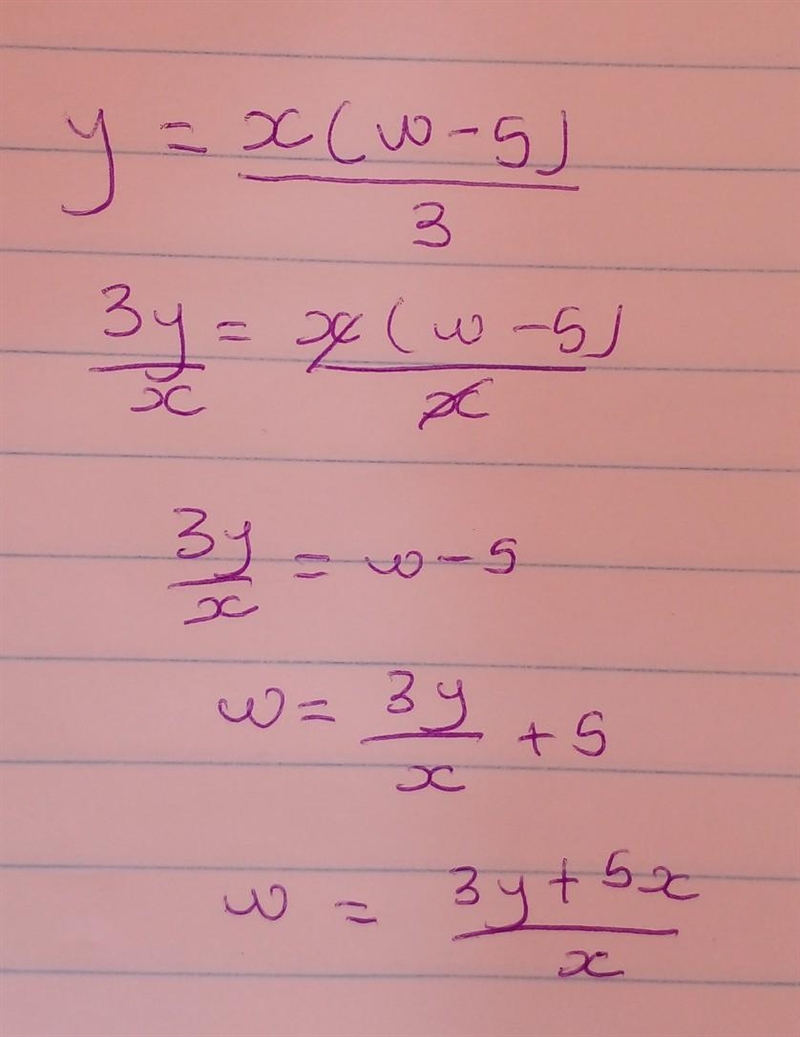 y = x(w - 5) / 3
3y / x = x(w - 5) / x
3y / x = w - 5
w = 3y / x + 5
w = 3y + 5x / x